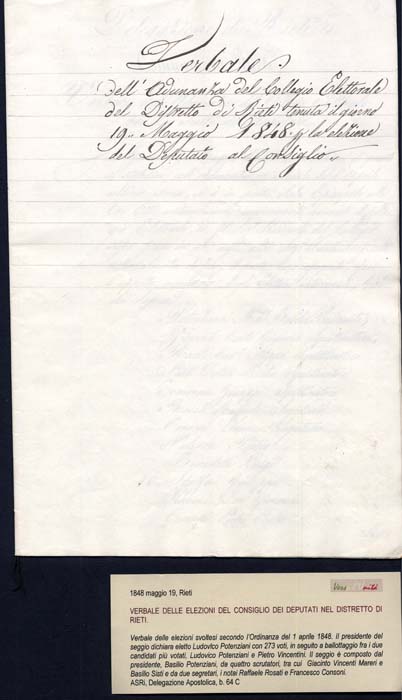 Verbale
dell'Adunanza del Collegio Elettorale
del Distretto di Rieti tenuta il giorno
19,, Maggio 1848. p la elezione
del Deputato al Consiglio,,
1848 maggio 19, Rieti
VERBALE DELLE ELEZIONI DEL CONSIGLIO DEI DEPUTATI NEL DISTRETTO DI
RIETI.
Verbale delle elezioni svoltesi secondo l'Ordinanza del 1 aprile 1848. Il presidente del
seggio dichiara eletto Ludovico Potenziani con 273 voti, in seguito a ballottaggio fra i due
candidati più votati, Ludovico Potenziani e Pietro Vincentini. Il seggio è composto dal
presidente, Basilio Potenziani, da quattro scrutatori, tra cui Giacinto Vincenti Mareri e
Basilio Sisti e da due segretari, i notai Raffaele Rosati e Francesco Consoni.
ASRi, Delegazione Apostolica, b. 64 C